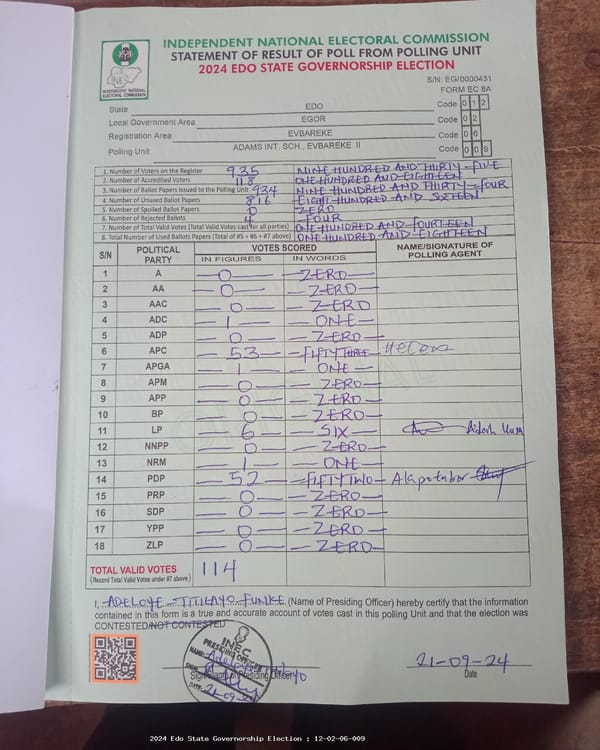 INDEPENDENT NATIONAL ELECTORAL COMMISSION
STATEMENT OF RESULT OF POLL FROM POLLING UNIT
2024 EDO STATE GOVERNORSHIP ELECTION
INDEPENDENT NATIONAL ELECTORAL COMMISSION
S/N: EG/0000431
FORM EC 8A
State EDO Code 0 1 2
Local Government Area EGOR Code 0 2
Registration Area EVBAREKE Code 0 6
Polling Unit ADAMS INT. SCH., EVBAREKE II Code 0 0 9
1. Number of Voters on the Register 935 NINE HUNDRED AND THIRTY-FIVE
2. Number of Accredited Voters 118 ONE HUNDRED AND EIGHTEEN
3. Number of Ballot Papers Issued to the Polling Unit 934 NINE HUNDRED AND THIRTY-FOUR
4. Number of Unused Ballot Papers 816 EIGHT HUNDRED AND SIXTEEN
5. Number of Spoiled Ballot Papers 0 ZERO
6. Number of Rejected Ballots 4 FOUR
7. Number of Total Valid Votes (Total Valid Votes cast for all parties) ONE HUNDRED AND FOURTEEN
8. Total Number of Used Ballots Papers (Total of #5 + #6 + #7 above) ONE HUNDRED AND EIGHTEEN
S/N POLITICAL PARTY VOTES SCORED NAME/SIGNATURE OF POLLING AGENT
IN FIGURES IN WORDS
1 A 0 ZERO
2 AA 0 ZERO
3 AAC 0 ZERO
4 ADC 1 ONE
5 ADP 0 ZERO
6 APC 53 FIFTY THREE
7 APGA 1 ONE
8 APM 0 ZERO
9 APP 0 ZERO
10 BP 0 ZERO
11 LP 6 SIX
12 NNPP 0 ZERO
13 NRM 1 ONE
14 PDP 52 FIFTY TWO
15 PRP 0 ZERO
16 SDP 0 ZERO
17 YPP 0 ZERO
18 ZLP 0 ZERO
TOTAL VALID VOTES 114
(Record Total Valid Votes under #7 above)
I, ADELOYE TITILAYO FUNKE (Name of Presiding Officer) hereby certify that the information
contained in this form is a true and accurate account of votes cast in this polling Unit and that the election was
CONTESTED/NOT CONTESTED
INEC
PRESIDING OFFICER
NAME:
DATE: 21-09-24
21-09-24
Date
2024 Edo State Governorship Election : 12-02-06-009